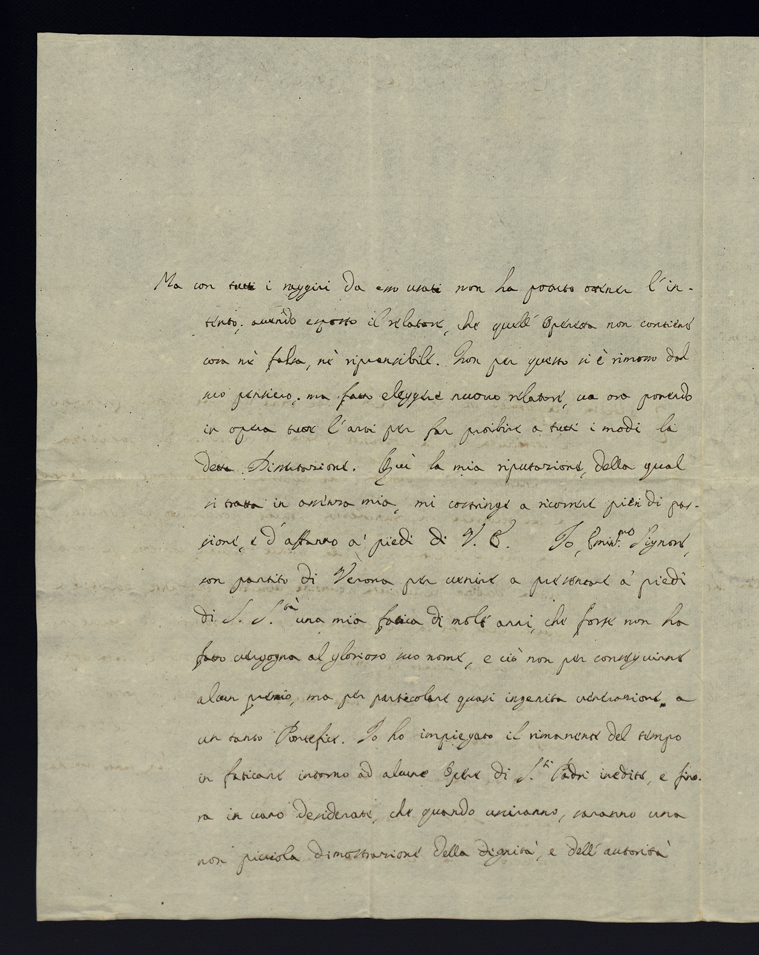 Ma con tutti i raggiri da esso usati non ha potuto ottener l'in-
tento; avendo esposto il relatore, che quell'Operetta non contiene
cosa nè falsa, nè riprensibile. Non per questo si è rimosso dal
suo pensiero; ma fatto eleggere nuovo relatore, va ora ponendo
in opera tutte l'arti per far proibire a tutti i modi la
detta Dissertazione. Quì la mia riputazione, della qual
si tratta in assenza mia, mi costringe a ricorrere pien di pas-
sione, e d'affanno a' piedi di V. E. Io, Emin.mo Signore,
son partito di Verona per venire a presentare a' piedi
di S. S.tà una mia fatica di molti anni, che forse non ha
fatto vergogna al glorioso suo nome, e ciò non per conseguirne
alcun premio, ma per particolare quasi ingenita venerazione a
un tanto Pontefice. Io ho impiegato il rimanente del tempo
in faticare intorno ad alcune Opere di S.ti Padri inedite, e fino-
ra in vano desiderate, che quando usciranno, saranno una
non picciola dimostrazione della dignità, e dell'autorità